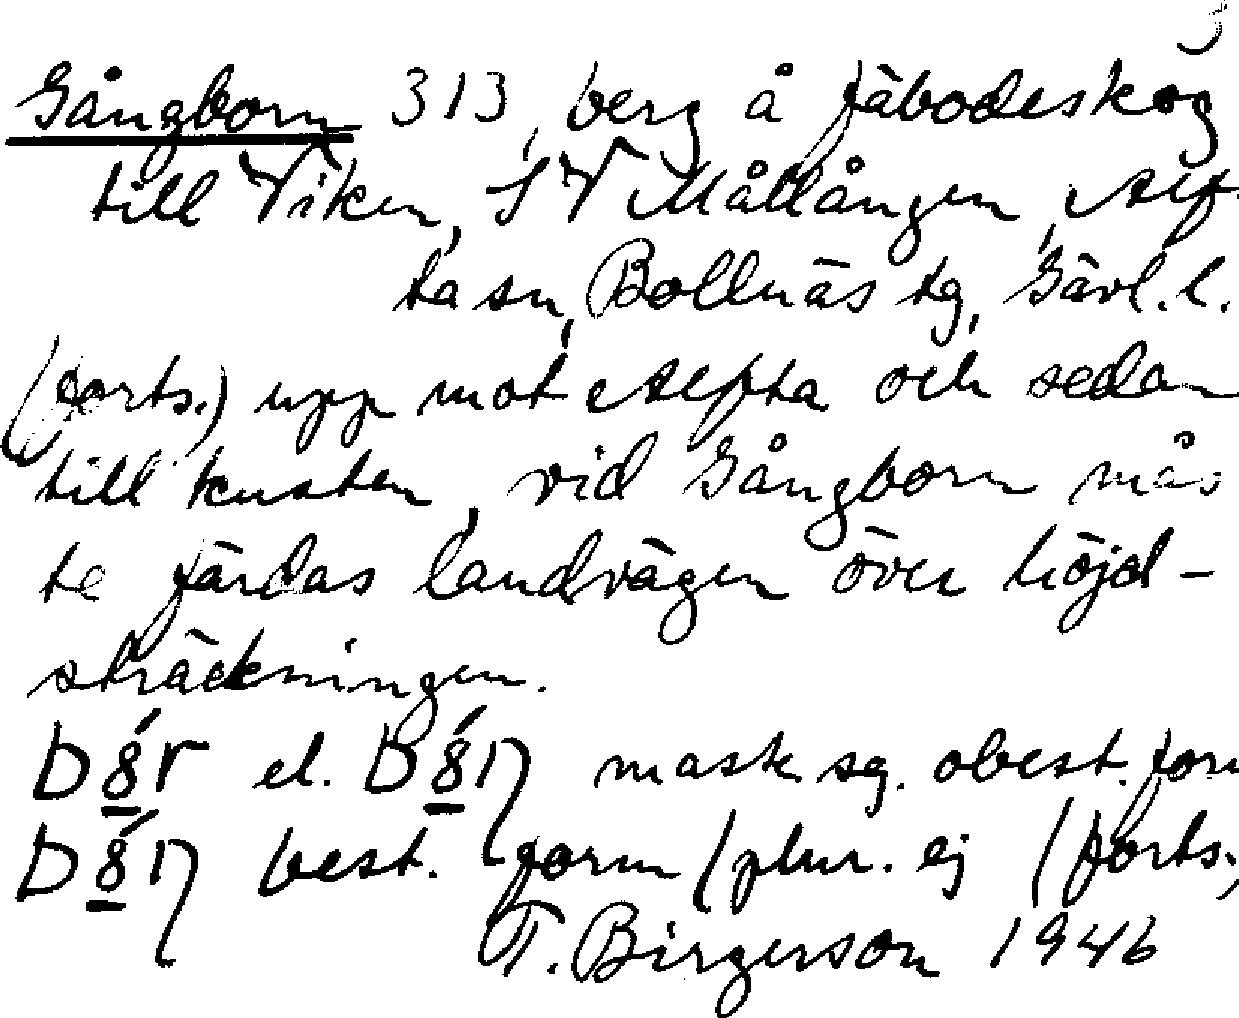 3
Gångborn 313, berg å fäbodeskog
till Viken, SV Mållången, Alf-
ta sn, Bollnäs tg, Gävl. l.
(forts.) upp mot Alfta och sedan
till kusten, vid Gångborn mås
te färdas landvägen över höjd-
sträckningen.
el. mask sg. obest. form
best. form (plur. ej (forts.)
T. Birgerson 1946